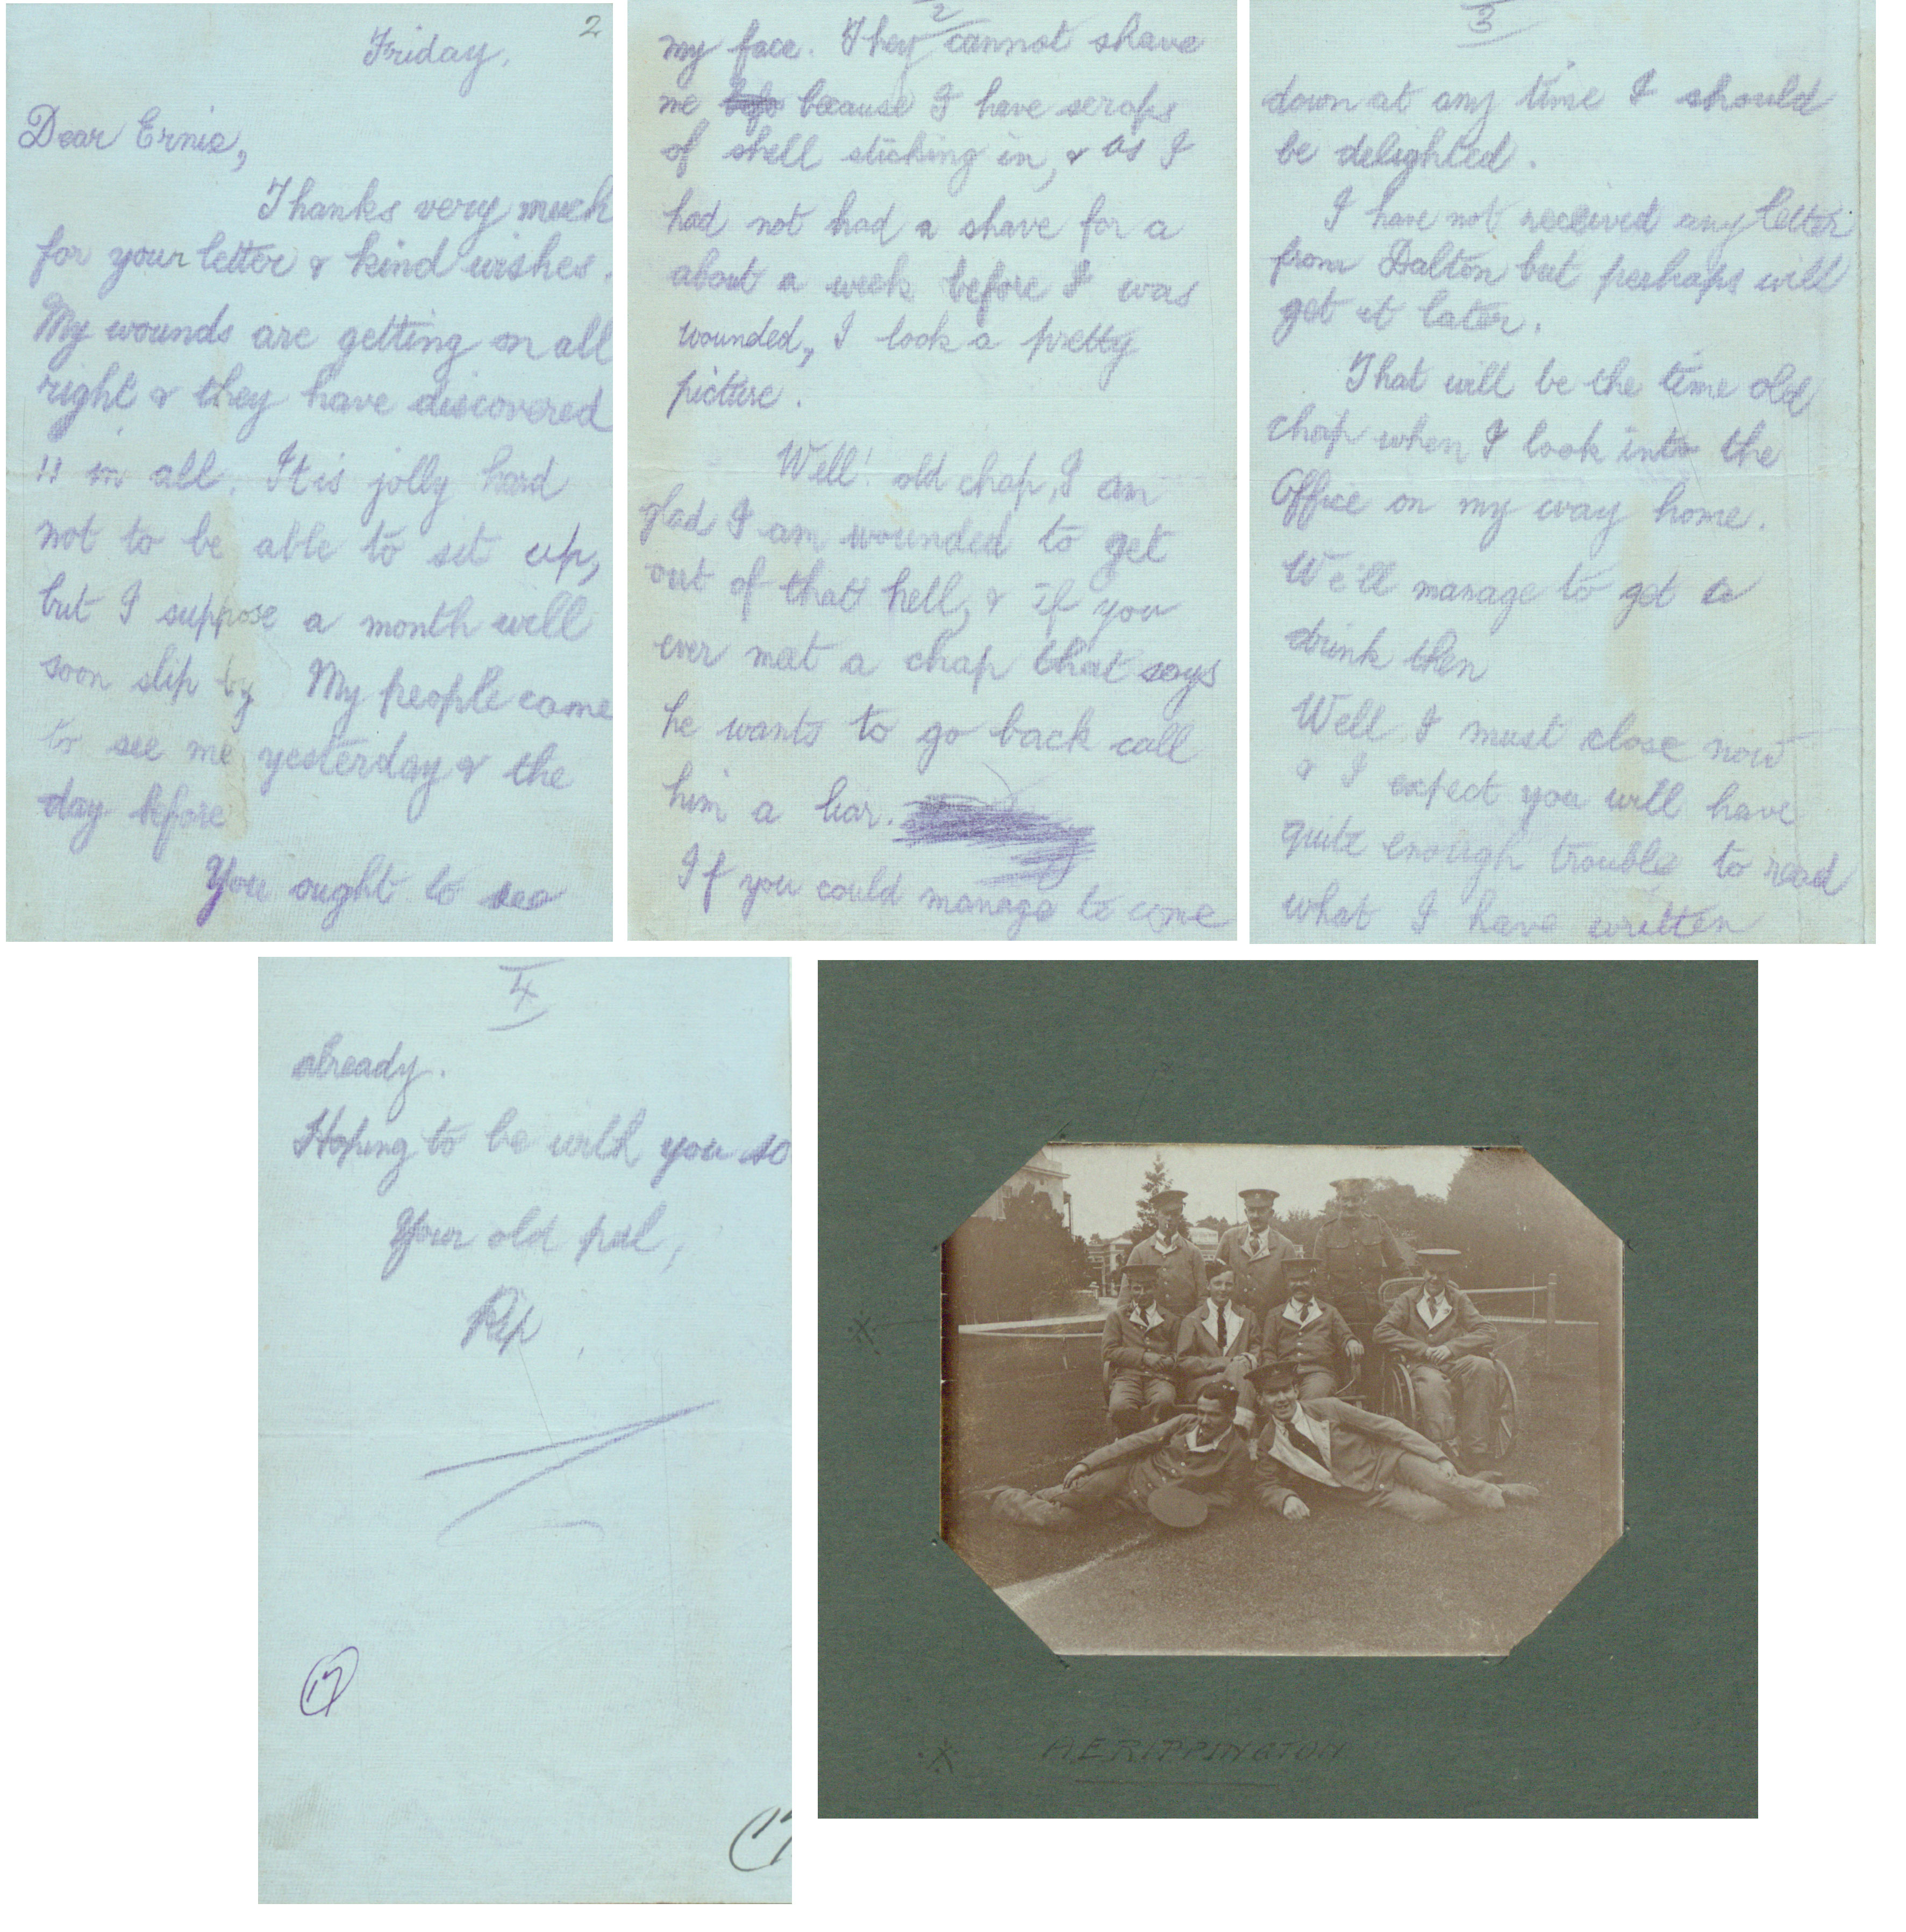 2
Friday,
Dear Ernie,
Thanks very much
for your letter & kind wishes.
My wounds are getting on all
right & they have discovered
11 in all. It is jolly hard
not to be able to sit up,
but I suppose a month will
soon slip by My people came
to see me yesterday & the
day before
You ought to see
2
my face. They cannot shave
me because I have scraps
of shell sticking in, & as I
had not had a shave for a
about a week before I was
wounded, I look a pretty
picture.
Well! old chap, I am
glad I am wounded to get
out of that hell, & if you
ever meet a chap that says
he wants to go back call
him a liar.
If you could manage to come
3
down at any time I should
be delighted.
I have not received any letter
from Dalton but perhaps will
get it later.
That will be the time old
chap when I look into the
Office on my way home.
We'll manage to get a
drink then
Well I must close now
& I expect you will have
quite enough trouble to read
what I have written
4
already.
Hoping to be with you so
Your old pal,
Rip
17
(17
X
X A E RIPPINGTON